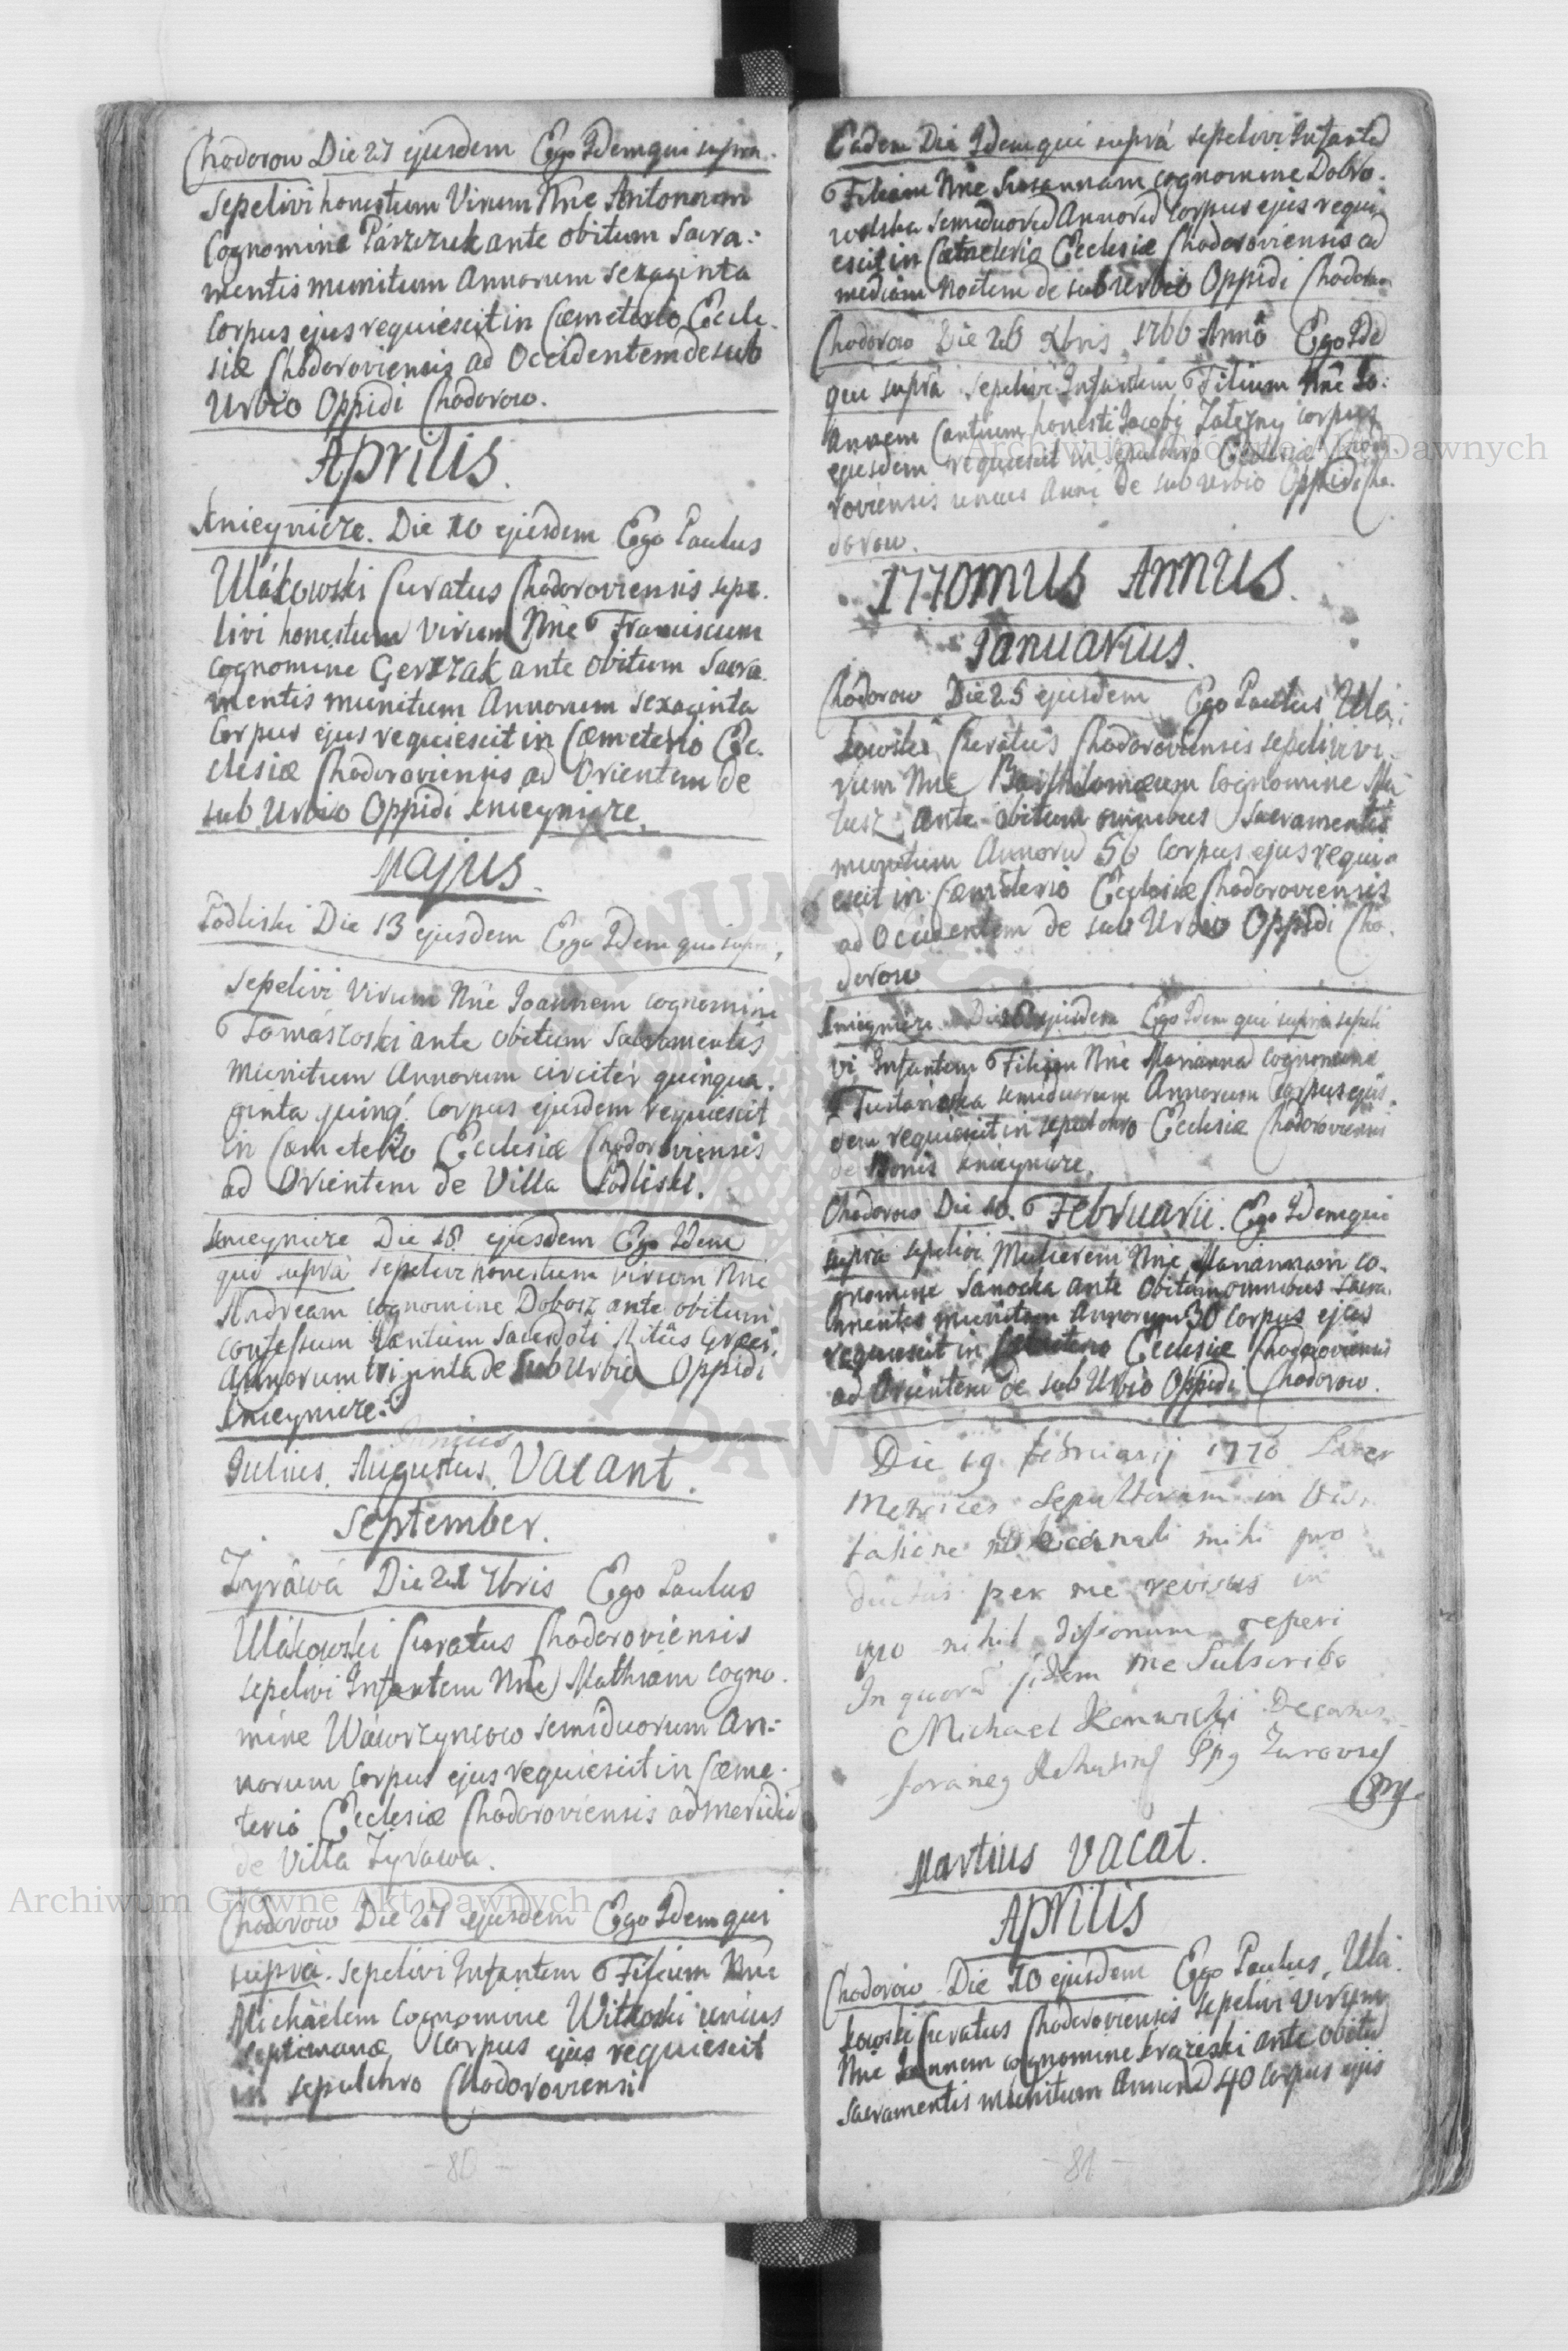 Chodorow Die 27 ejusdem Ego Idem qui supra.
sepelivi honestum Virum Nne Antonium
Cognomine Parzczuk ante obitum Sacra:
mentis munitum Annorum sexaginta
Corpus ejus requiescit in Cæmeterio Eccle.
siæ Chodoroviensis ad Occidentem de sub
Urbio Oppidi Chodorow.
Aprilis.
Knieynicze. Die 10 ejusdem Ego Paulus
Ulákowski Curatus Chodoroviensis sepe.
livi honestum virum Nne Franciscum
cognomine Gerzzak ante obitum Sacra.
mentis munitum Annorum sexaginta
Corpus ejus requiescit in Cæmeterio Ec.
clesiæ Chodoroviensis ad Orientem de
sub Urbio Oppidi Knieynicze.
Majus.
Podliski Die 13 ejusdem Ego Idem qui supra,
sepelivi Virum Nne Joannem cognomine
Tomászoski ante obitum Sacramentis
Munitum Annorum circiter quinqua.
ginta quinq. Corpus ejusdem requiescit
in Cæmeterio Ecclesiæ Chodoroviensis
ad Orientem de Villa Podliski.
Knieynicze Die 18 ejusdem Ego Idem
qui suprà sepelivi honestum virum Nne
Andream cognomine Dobosz ante obitum
confessum tantum Sacerdoti Ritûs Græci,
Annorum triginta de sub Urbio Oppidi
Knieynicze.
Junius
Julius. Augustus. Vacant.
September.
Zyráwá Die 21 7bris Ego Paulus
Ulákowski Curatus Chodoroviensis
sepelivi Infantem Nne Mathiam cogno.
mine Wáwrzyncow semiduorum An:
norum Corpus ejus requiescit in Cæme.
terio Ecclesiæ Chodoroviensis ad meridie
de Villa Zyrawa.
Chodorow Die 27 ejusdem Ego Idem qui
suprà. sepelivi Infantem Filium Nne
Michaëlem Cognomine Witkoski unius
septimanæ Corpus ejus requiescit
in sepulchro Chodoroviensi
- 80 -
Eadem Die Idem qui suprá sepelivi Infante
Filiam Nne Susannam cognomine Dobro.
wolska semiduorū Annorū Corpus ejus requi.
escit in Cæmeterio Ecclesiæ Chodoroviensis ad
mediam Noctem de sub Urbio Oppidi Chodorow
Chodorow Die 26 Xbris 1766 Anno Ego Ide
qui suprà sepelivi Infantem Filium Nne Jo:
annem Cantium honesti Jacobi Zalezny corpus
ejusdem requiescit in sepulchro Ecclesiæ Chodo.
roviensis unius Anni de sub Urbio Oppidi Cho.
dorow.
1770mus Annus.
Januarius.
Chodorow Die 25 ejusdem Ego Paulus Ula:
kowski Curatus Chodoroviensis sepelivi vi.
rum Nne Bartholomæum Cognomine Ma
tusz ante obitum omnibus Sacramentis
munitum Annorū 56 Corpus ejus requi.
escit in Cæmeterio Ecclesiæ Chodoroviensis
ad Occidentem de sub Urbio Oppidi Cho.
dorow
Knieynicze Die ejusdem Ego Idem qui suprà sepeli
vi Infantem Filiam Nne Mariannā cognomine
Tustanoska semiduorum Annorum Corpus ejus.
dem requiescit in sepulchro Ecclesiæ Chodoroviensis
de Bonis Knieynicze.
Chodorow Die 10. Februarii. Ego Idem qui
suprà sepelivi Mulierem Nne Mariannam co.
gnomine Sanocka ante Obitum omnibus Sacra.
mentis munitam Annorum 30 Corpus ejus
requiescit in Cæmeterio Ecclesiæ Chodoroviensis
ad Orientem de sub Urbio Oppidi Chodorow.
Die 19 februarij 1770 Liber
Metrices Sepultorum in Visi.
tatione Decanali mihi pro
ductus per me revisus in
quo nihil dissonum reperi
In quorū fidem me Subscribo
Michael Decanus
foraneg
Martius Vacat.
Aprilis
Chodorow Die 10 ejusdem Ego Paulus Ula.
kowski Curatus Chodoroviensis sepelivi virum
Nne Joannem cognomine ante obitū
Sacramentis munitum Annorū 40 Corpus ejus
- 81 -
Archiwum Główne Akt Dawnych
Archiwum Główne Akt Dawnych